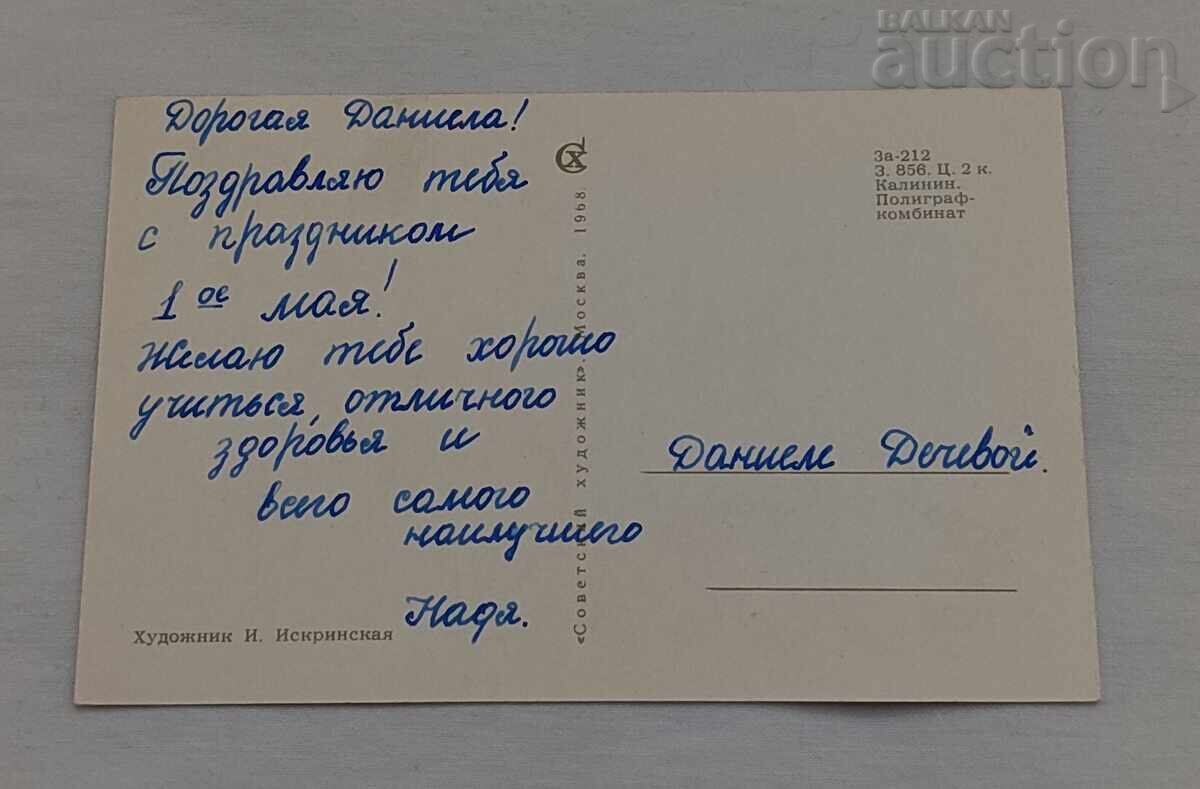 BALKAN
auction
Дорогая Даниела!
Поздравляю тебя
с праздником
1ое мая!
Желаю тебе хорошо
учиться, отличного
здоровья и
всего самого
наилучшего
Надя.
Художник И. Искринская
«Советский художник». Москва. 1968.
СХ
За-212
З. 856. Ц. 2 к.
Калинин.
Полиграф-
комбинат
Даниеле Дечевой.